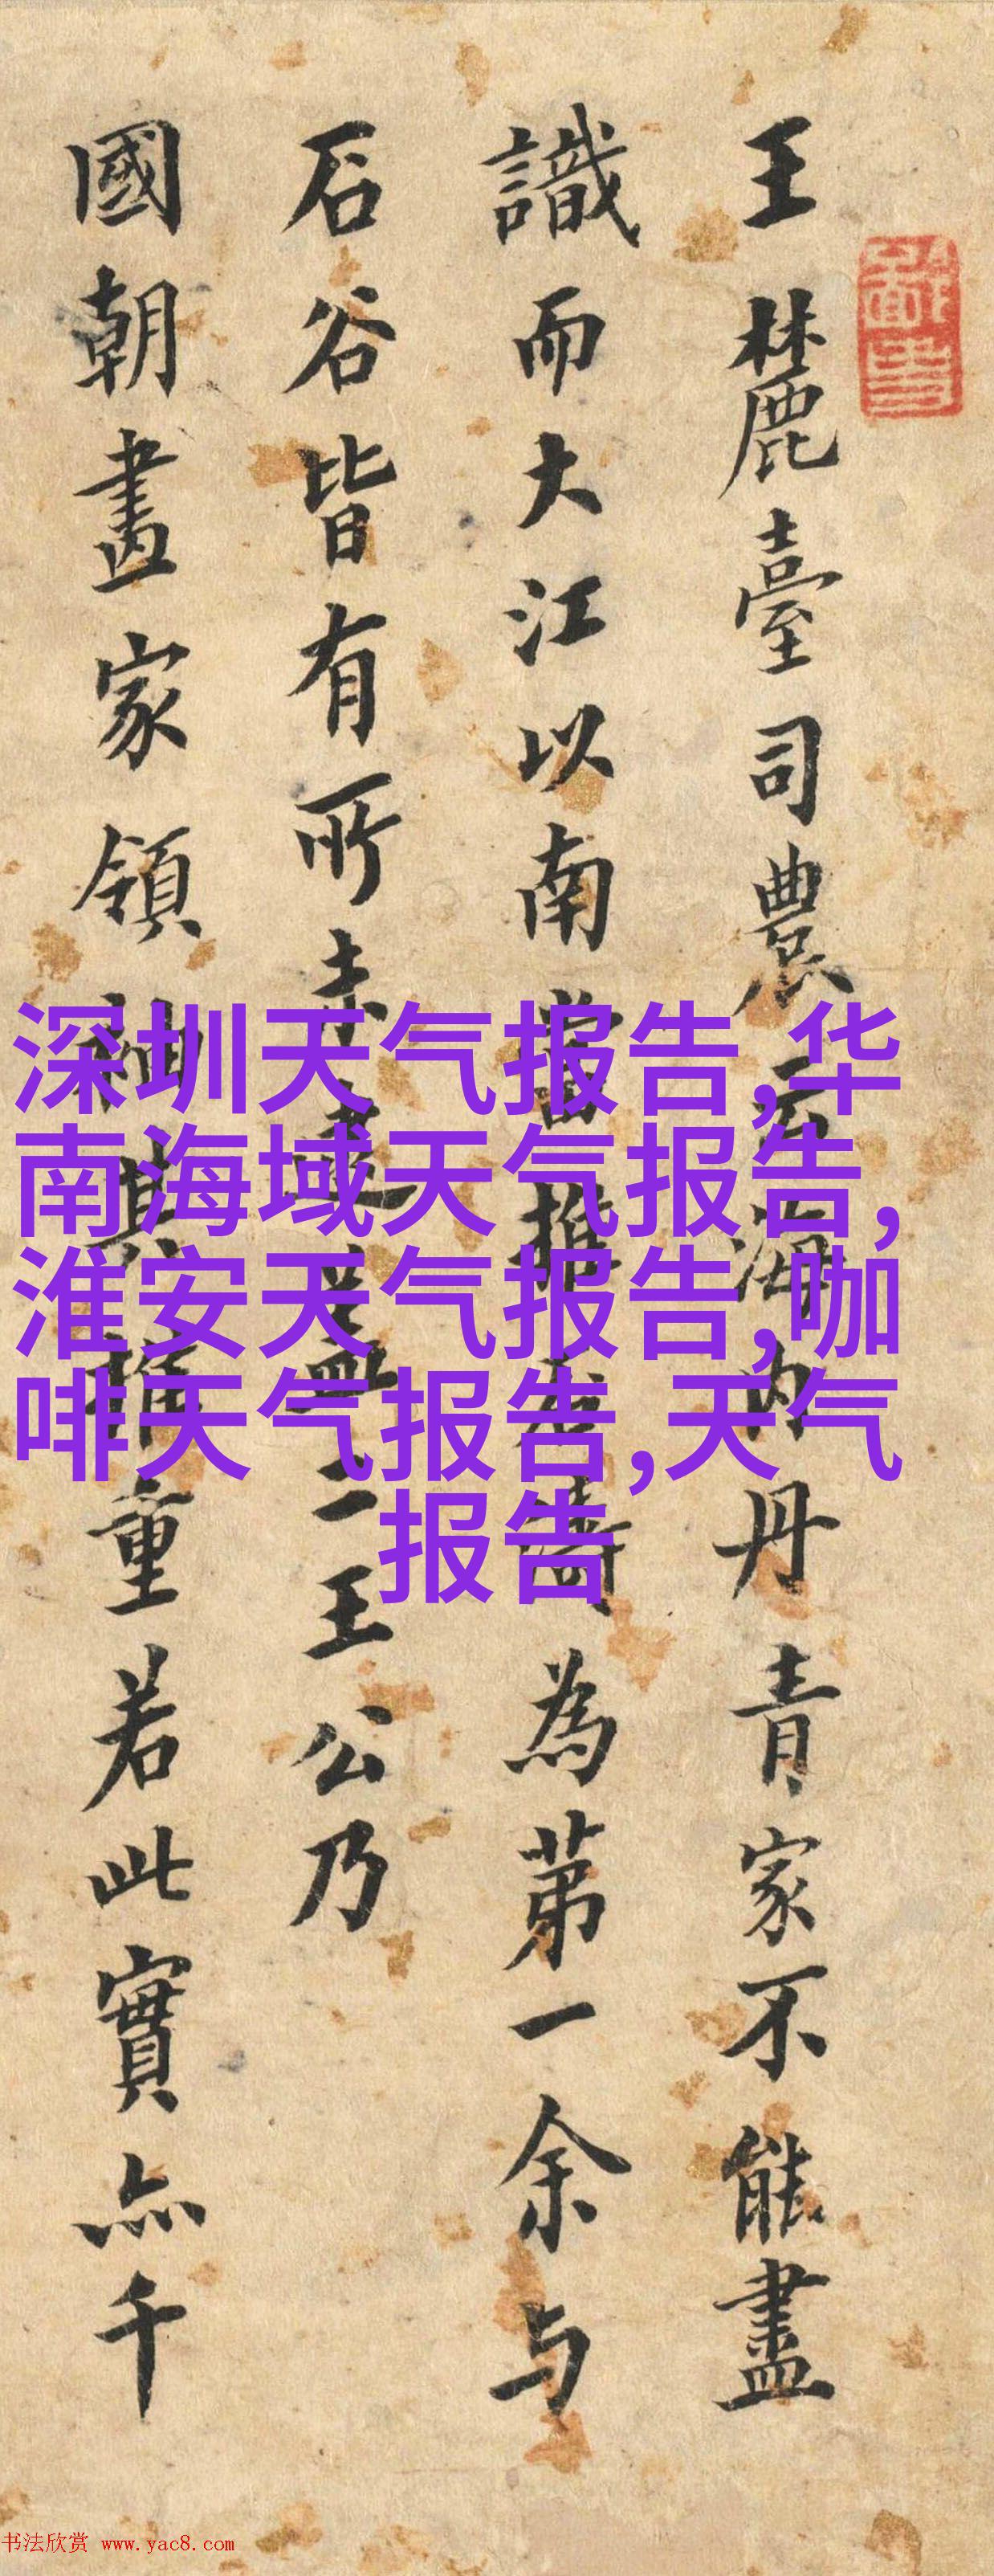 王麓臺司農云海內丹青家不能盡
識而大江以南當推石濤為第一余与
石谷皆有所未逮盖二王公乃
國朝畫家領袖其推重若此實亦千
深圳天气报告,华
南海域天气报告,
淮安天气报告,咖
啡天气报告,天气
报告
书法欣赏 www.yac8.com